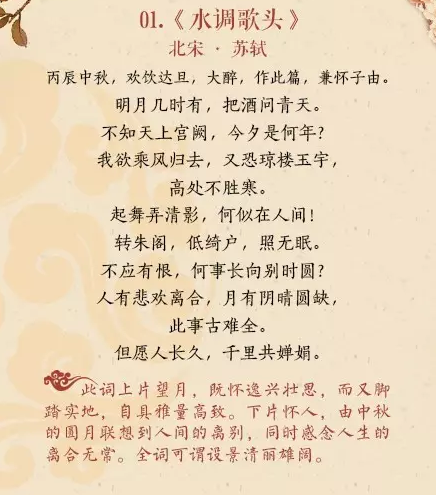 01.《水调歌头》
北宋 · 苏轼
丙辰中秋，欢饮达旦，大醉，作此篇，兼怀子由。
明月几时有，把酒问青天。
不知天上宫阙，今夕是何年？
我欲乘风归去，又恐琼楼玉宇，
高处不胜寒。
起舞弄清影，何似在人间！
转朱阁，低绮户，照无眠。
不应有恨，何事长向别时圆？
人有悲欢离合，月有阴晴圆缺，
此事古难全。
但愿人长久，千里共婵娟。
此词上片望月，既怀逸兴壮思，而又脚
踏实地，自具雅量高致。下片怀人，由中秋
的圆月联想到人间的离别，同时感念人生的
离合无常。全词可谓设景清丽雄阔。